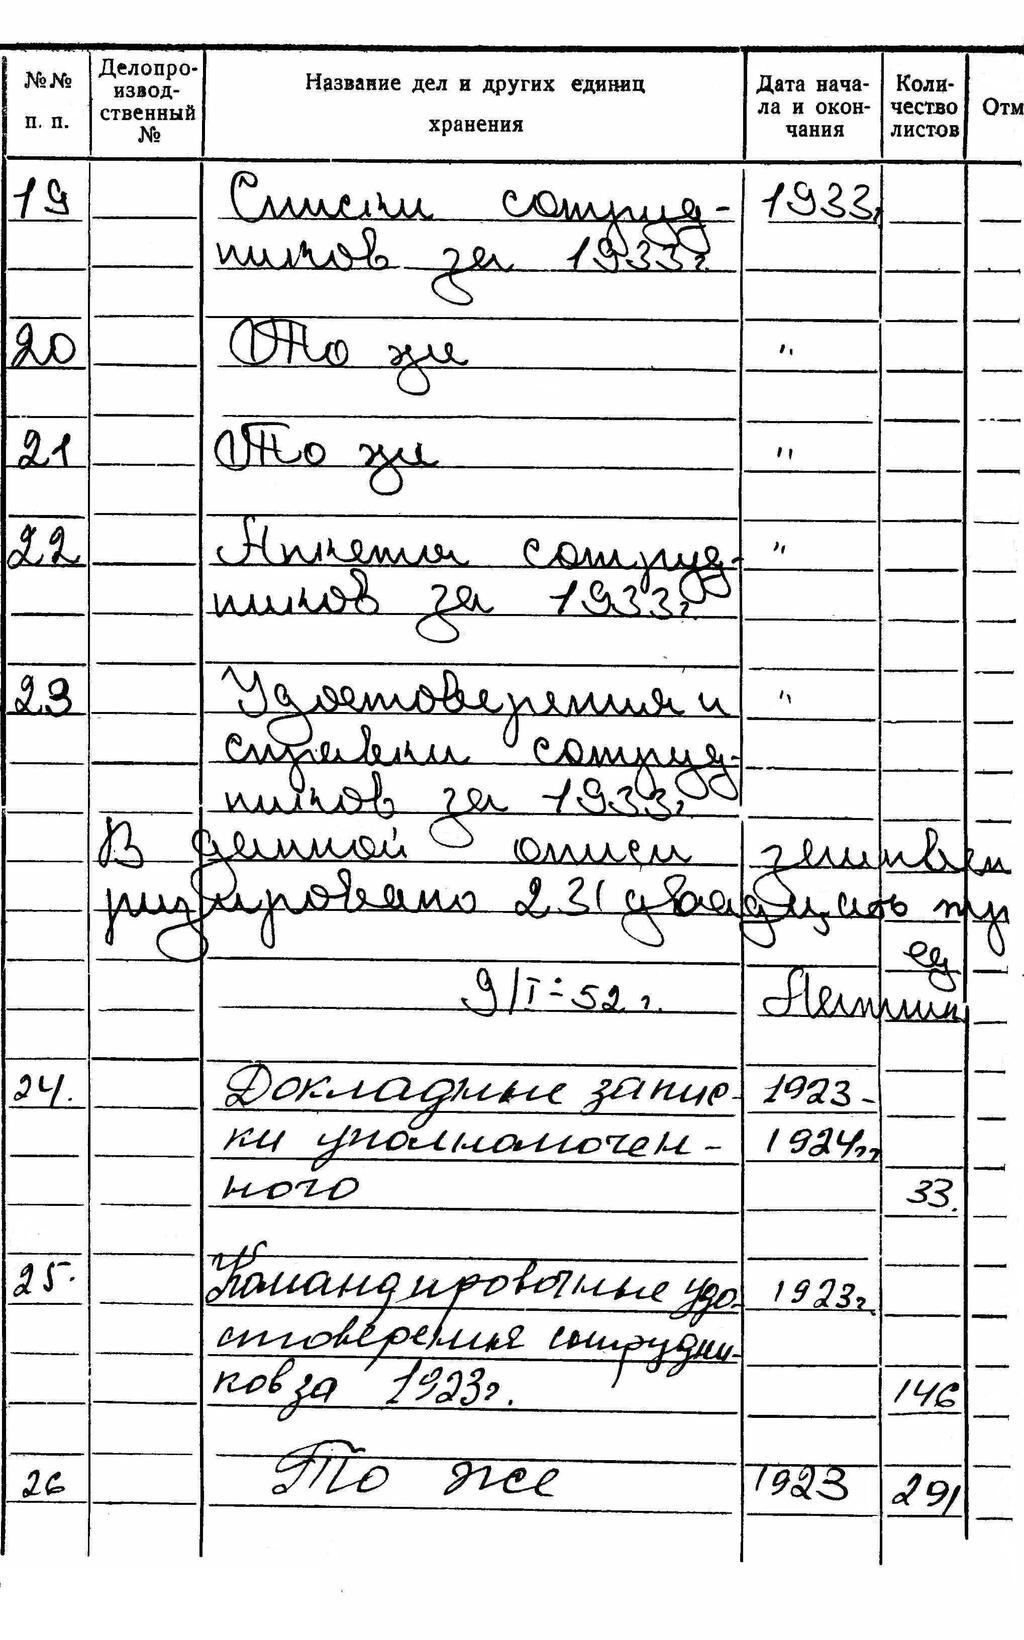 №№ п. п.
Делопро-
извод-
ственный
№
Название дел и других единиц
хранения
Дата нача-
ла и окон-
чания
Коли-
чество
листов
Отм
19 Списки сотруд- 1933г
ников за 1933г.
20 То же "
21 То же "
22 Анкета сотруд- "
ников за 1933г.
23 Удостоверения и "
справки сотруд-
ников за 1933г.
В данной описи заинвен
ризировано 23/двадцать тр
ед
9/I-52г.
24. Докладные запис- 1923-
ки уполномочен- 1924гг
ного 33.
25. Командировочные удо- 1923г.
стоверения сотрудни-
ков за 1923г. 146
26 То же 1923 291